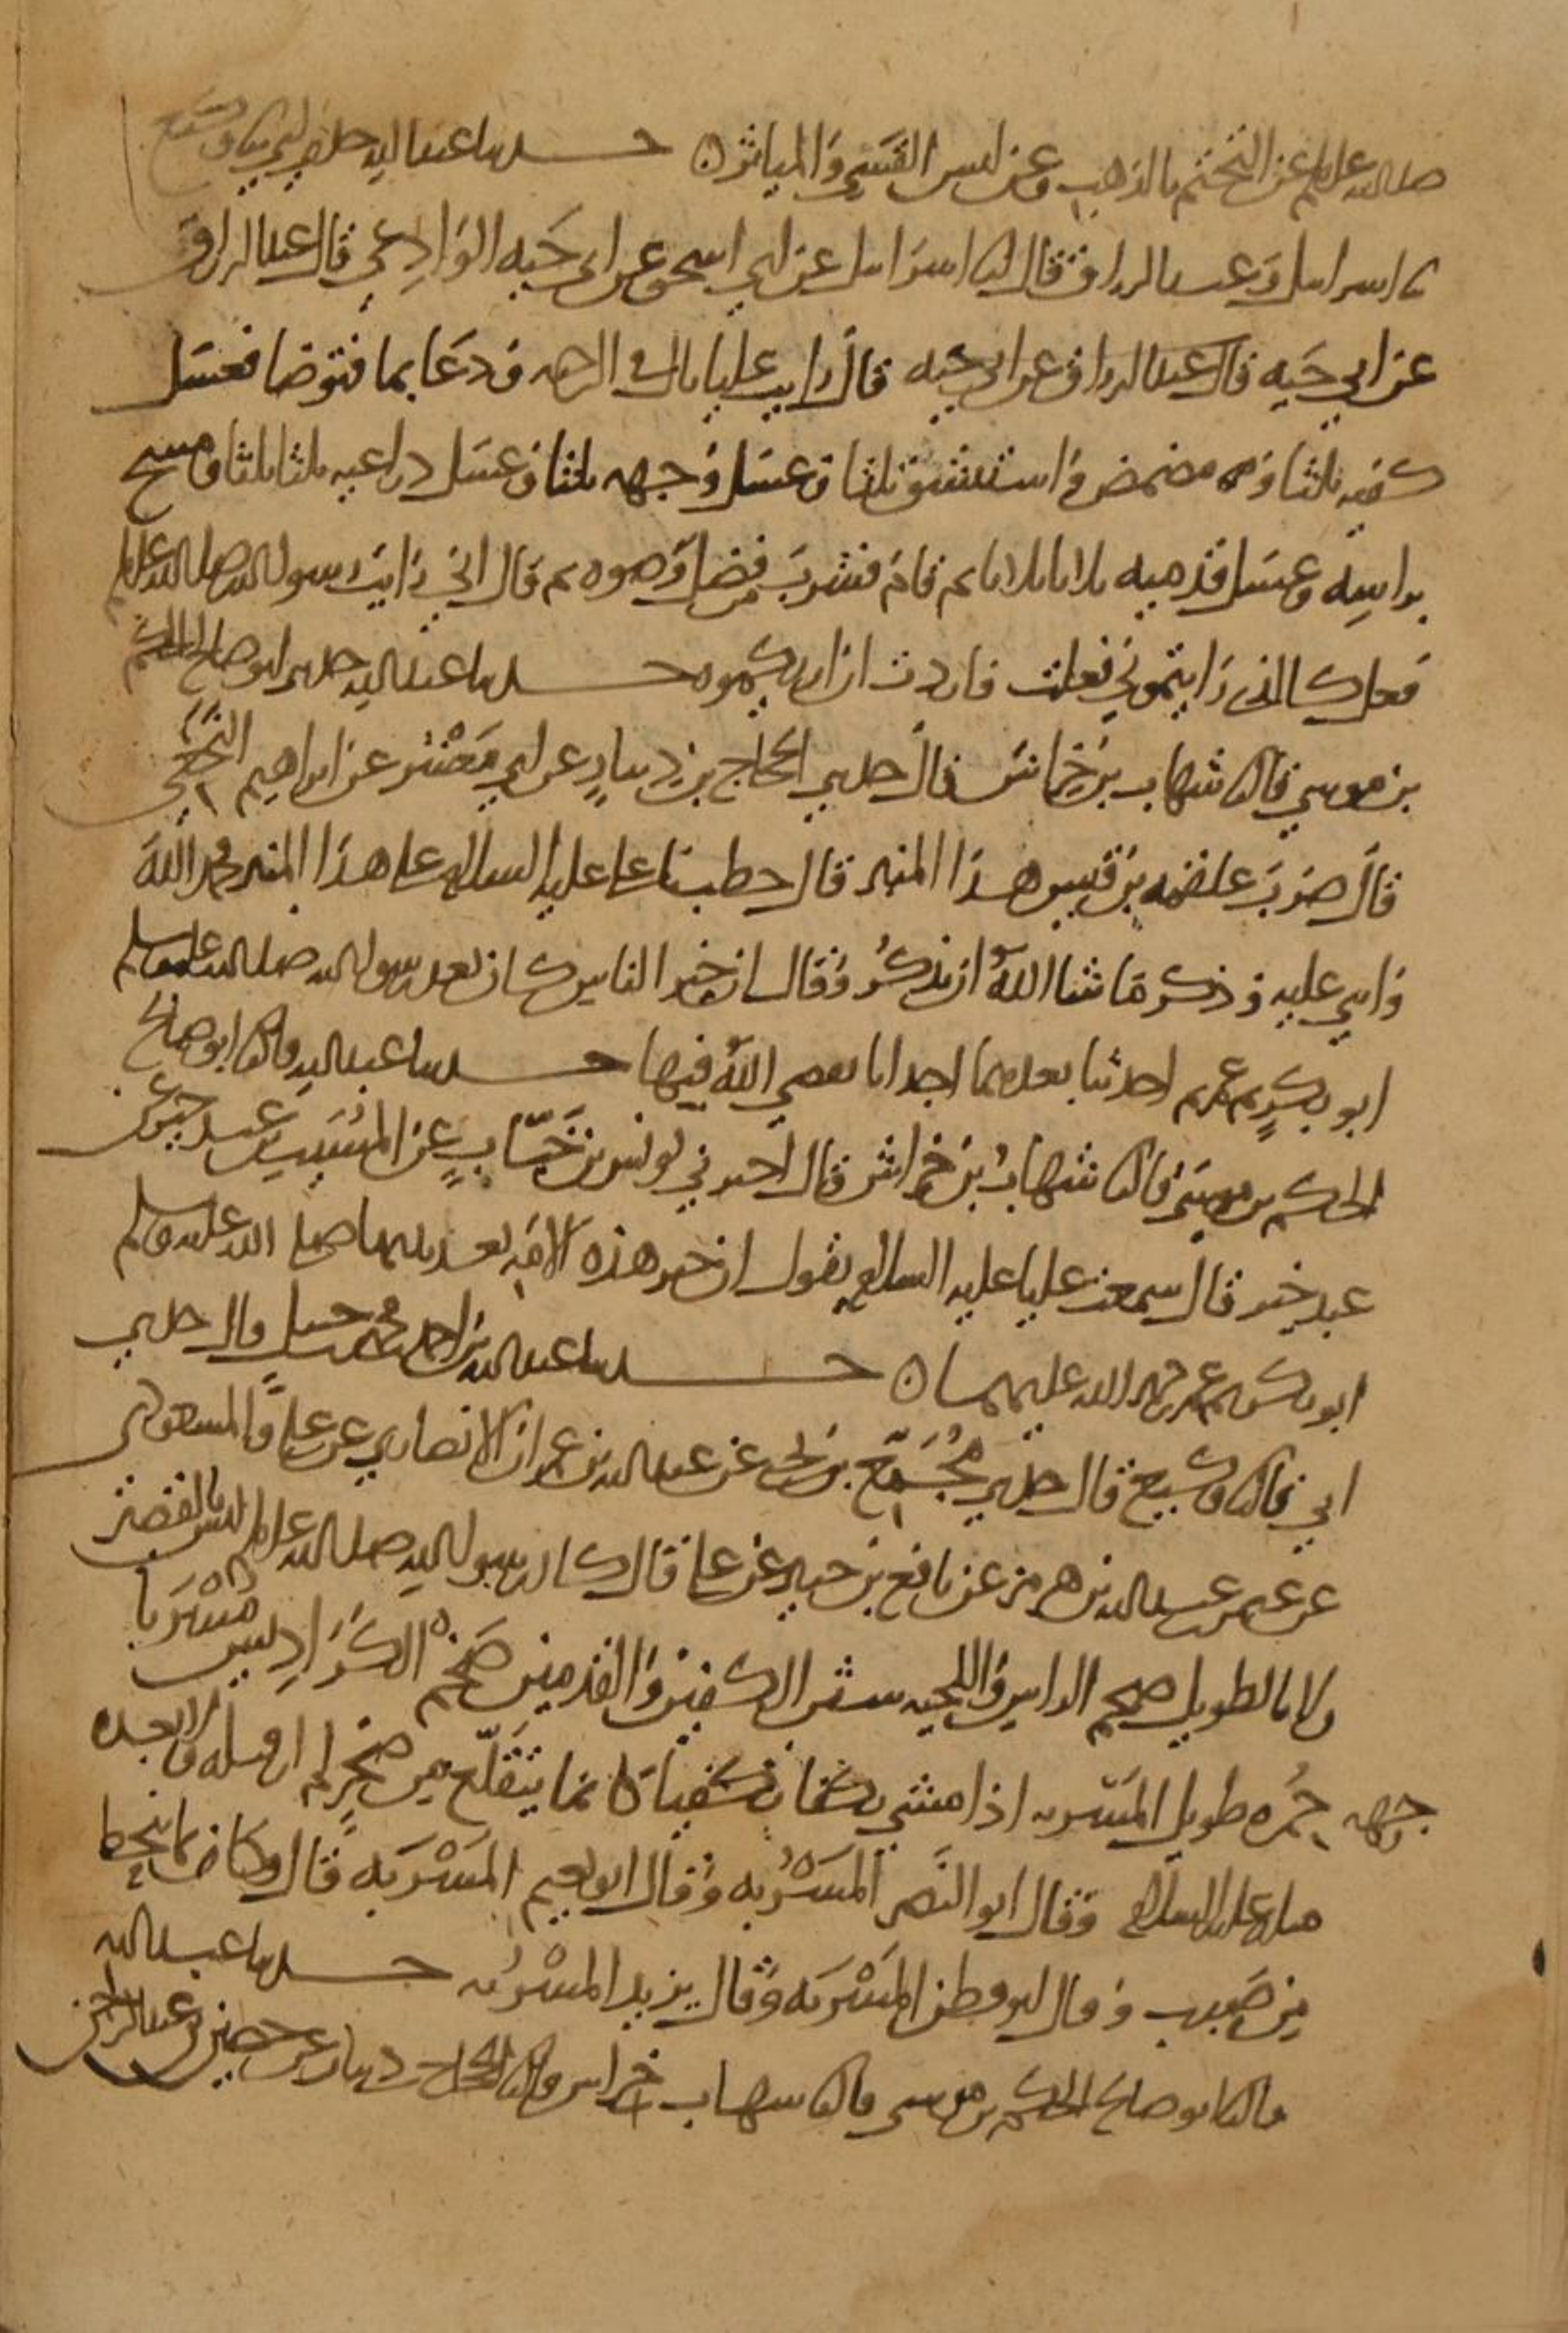 صلى الله عليه وسلم عن التختم بالذهب وعن لبس القسي والمياثر ه حدثنا عبد الله حدثني ابي ثنا وكيع
ثنا اسرايل وعبد الرزاق قال انا اسرايل عن ابي اسحق عن ابي حيه الوادعي قال عبد الرزاق
عن ابي حيه قال عبد الرزاق عن ابي حيه قال رايت عليا بال في الرحبه ودعا بما فتوضا فغسل
كفيه ثلثا ومضمض واستنشق ثلثا وغسل وجهه ثلثا وغسل ذراعيه ثلثا ثلثا ومسح
براسه وغسل قدميه ثلاثا ثلاثا ثم قام فشرب من فضل وضوه ثم قال اني رايت رسول الله صلى الله عليه وسلم
فعل كالذي رايتموني فعلت فاردت ان اريكموه حدثنا عبد الله حدثني ابو صالح الحكم
بن موسى قال ثنا شهاب بن خراش قال حدثني الحجاج بن دينار عن ابي معشر عن ابراهيم النخعي
قال ضرب علقمه بن قيس هذا المنبر قال خطبنا علي عليه السلام على هذا المنبر فحمد الله
واثنى عليه وذكر ما شا الله ان يذكر وقال ان خير الناس كان بعد رسول الله صلى الله عليه وسلم
ابو بكر ثم عمر ثم احدثنا بعدهما احداثا يقضي الله فيها حدثنا عبد الله قال ثنا ابو صالح
الحكم بن موسى قال ثنا شهاب بن خراش قال اخبرني يونس بن خباب عن المسيب بن عبد خير عن
عبد خير قال سمعت عليا عليه السلام يقول ان خير هذه الامه بعد نبيها صلى الله عليه وسلم
ابو بكر ثم عمر رحمه الله عليهما ه حدثنا عبد الله بن احمد بن محمد بن حنبل قال حدثني
ابي قال ثنا وكيع قال حدثني مجمع بن يحيى عن عبد الله بن عمران الانصاري عن علي والمسعودي
عن عثمن بن عبد الله بن هرمز عن نافع بن جبير عن علي قال كان رسول الله صلى الله عليه وسلم ليس بالقصير
ولا بالطويل ضخم الراس واللحيه شثن الكفين والقدمين ضخم الكراديس مشربا
وجهه حمره طويل المسربه اذا مشى تكفا تكفيا كانما يتقلع من صخر لم ار قبله ولا بعده
مثله عليه السلام وقال ابو النضر المسربه وقال ابو نعيم المسربه قال وكيع كانما ينحط
من صبب وقال ابو قطن المسربه وقال يزيد المسربه حدثنا عبد الله
قال ثنا ابو صالح الحكم بن موسى قال ثنا شهاب بن خراش قال ثنا الحجاج بن دينار عن حصين بن عبد الرحمن